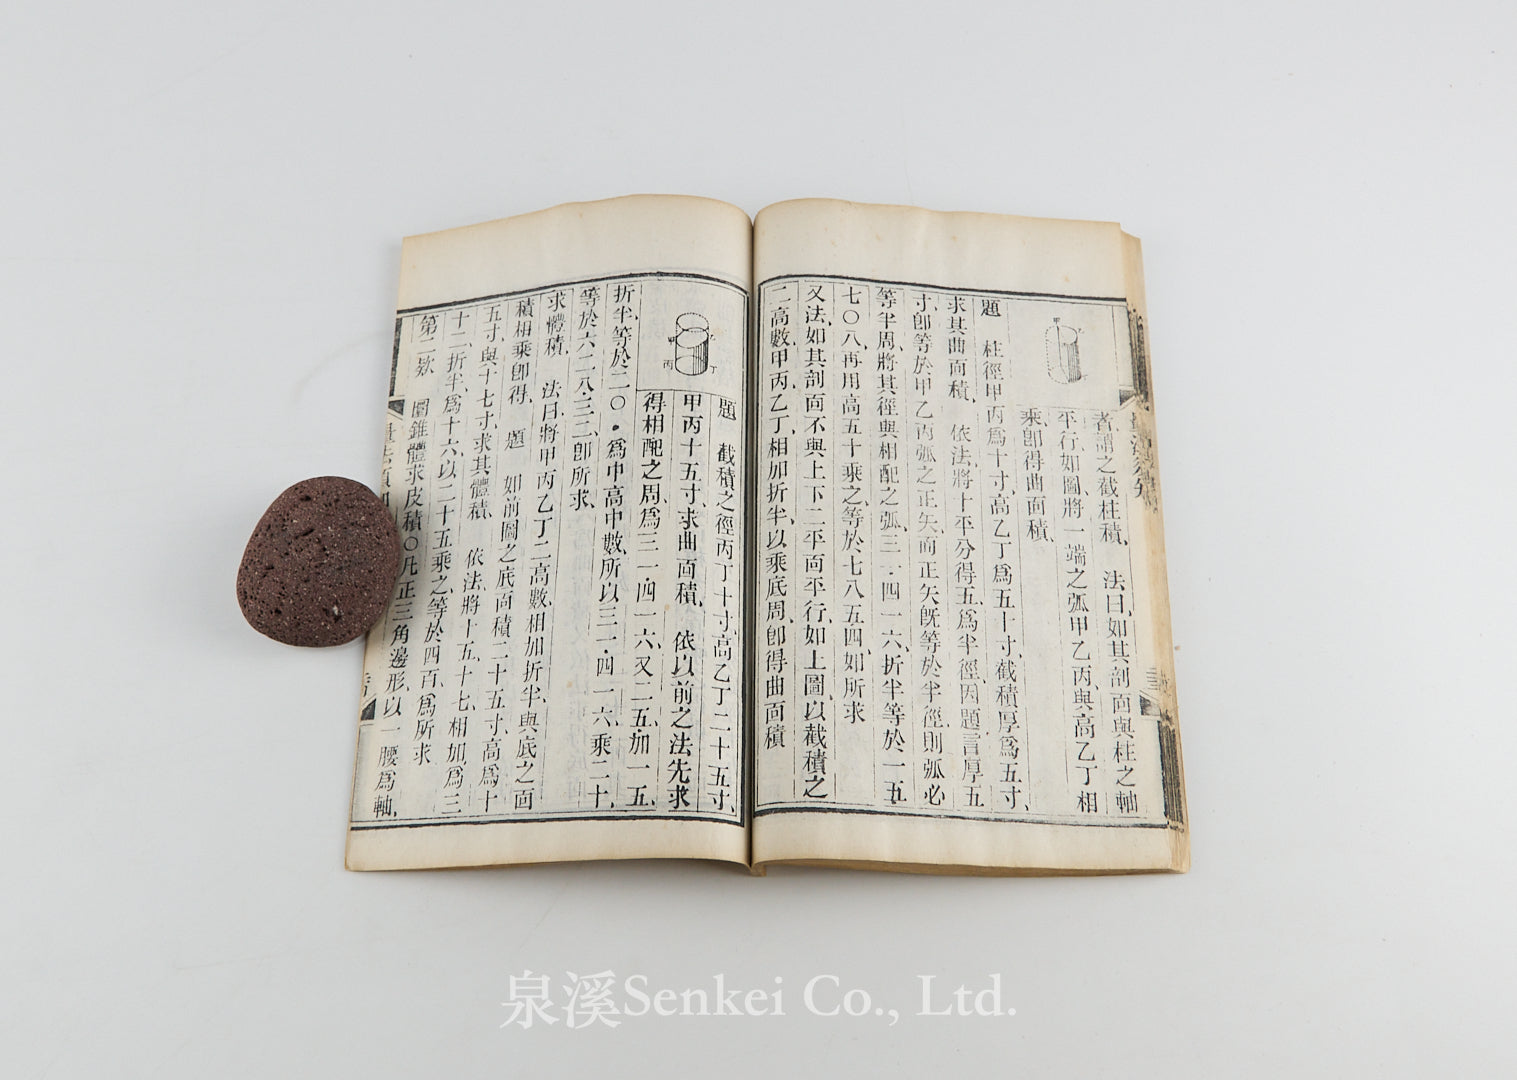 者謂之截柱積、　法曰、如其剖面與柱之軸
平行、如圖、將一端之弧甲乙丙、與高乙丁相
乘、卽得曲面積、
題　柱徑甲丙爲十寸、高乙丁爲五十寸、截積厚爲五寸、
求其曲面積、　依法、將十平分、得五、爲半徑、因題言厚五
寸、卽等於甲乙丙弧之正矢、而正矢旣等於半徑、則弧必
等半周、將其徑與相配之弧、三一·四一六、折半、等於一五
七〇八、再用高五十乘之、等於七八五四、如所求
又法、如其剖面不與上下二平面平行、如上圖、以截積之
二高數、甲丙、乙丁、相加折半、以乘底周、卽得曲面積
甲
乙
丁
題　截積之徑丙丁十寸、高乙丁二十五寸、
甲丙十五寸、求曲面積、　依以前之法、先求
得相配之周、爲三一·四一六、又二五、加一五、
折半、等於二〇·爲中高中數、所以三一·四一六、乘二十、
等於六二八·三二、卽所求、
求體積、　法曰、將甲丙乙丁二高數、相加折半、與底之面
積相乘、卽得、　題　如前圖之底面積二十五寸、高爲十
五寸、與十七寸、求其體積、　依法、將十五、十七、相加、爲三
十二、折半、爲十六、以二十五乘之、等於四百、爲所求
第二欵　圓錐體求皮積〇凡正三角邊形、以一腰爲軸、
甲
乙
丙
丁
泉溪Senkei Co., Ltd.